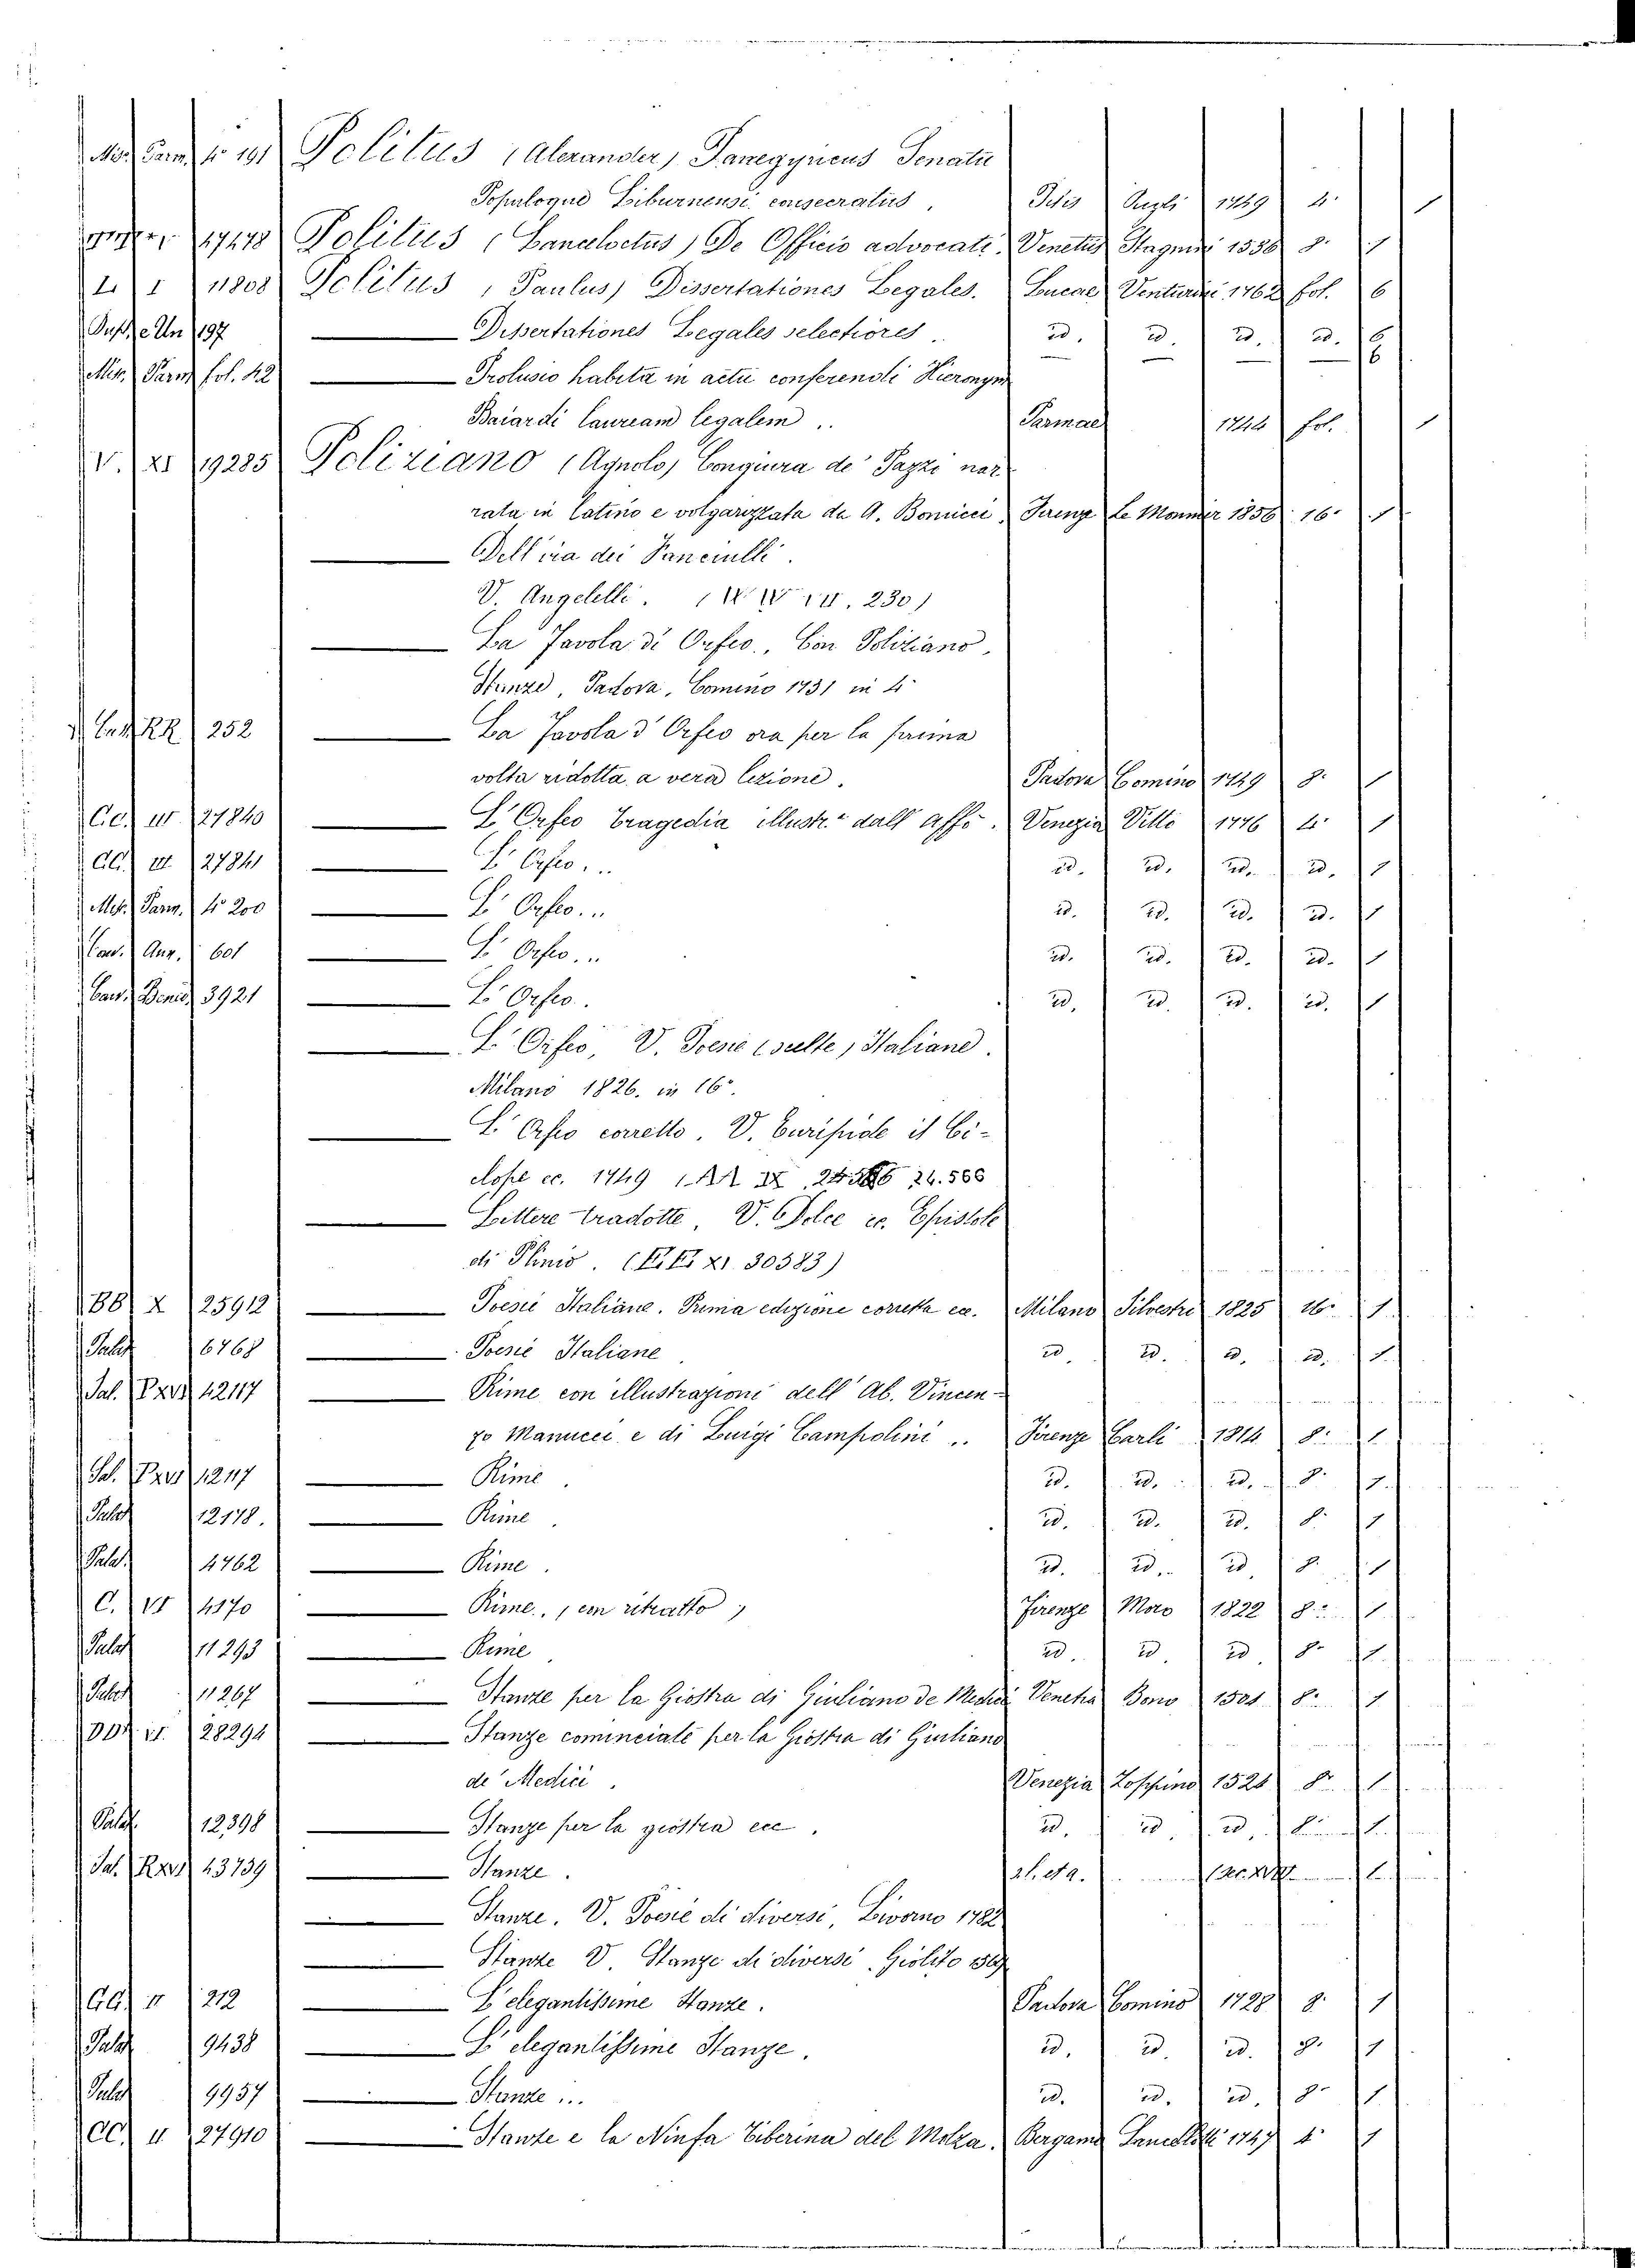 Mis. Parm. 4° 191 Politus (Alexander) Panegyricus Senatui
Populoque Liburnensi consecratus. Pisis 1769 4° 1
17478 Politus (Lanceloctus) De Officio advocati. Venetiis Stagnini 1536 8° 1
L I 11808 Politus (Paulus) Dissertationes Legales. Lucae Venturini 1762 fol. 6
197 — Dissertationes Legales selectiores.. id. id. id. id. 6
6
Mis. Parm. fol. 42 — Prolusio habita in actu conferendi Hieronymo
Baiardi lauream legalem .. Parmae fol. 1
V. XI 19285 Poliziano (Agnolo) Congiura de' Pazzi nar-
rata in latino e volgarizzata da A. Bonucci. Firenze Le Monnier 1856 16° 1
— Dell'ira dei Fanciulli.
V. Angelelli. 230)
— La Favola di Orfeo.. Con Poliziano,
Stanze, Padova, Comino 1731 in 4°
RR 252 — La Favola d'Orfeo ora per la prima
volta ridotta a vera lezione. Padova Comino 1749 8° 1
CC. 27840 — L'Orfeo Tragedia illustr.ª dall'Affò. Venezia Vitto 1776 4° 1
CC. 27841 — L'Orfeo... id. id. id. id. 1
Mis. Parm. 4° 200 — L'Orfeo... id. id. id. id. 1
Cav. Aur. 601 — L'Orfeo... id. id. id. id. 1
Cav. 3921 — L'Orfeo. id. id. id. id. 1
— L'Orfeo, V. Poesie (scelte) Italiane.
Milano 1826. in 16°.
— L'Orfeo corretto. V. Euripide il Ci-
clope ec. 1749 24.566
— Lettere tradotte, V. Dolce ec. Epistole
di Plinio. XI 30583)
BB X 25912 — Poesie Italiane. Prima edizione corretta ec. Milano Silvestri 1825 16° 1
Palat. 6768 — Poesie Italiane id. id. id. id. 1
Sal. 12117 — Rime con illustrazioni dell'Ab. Vincen-
zo Nanucci e di Luigi Ciampolini .. Firenze Carli 1814 8° 1
Sal. — Rime. id. id. id. 8° 1
Palat. 12178. — Rime. id. id. id. 8° 1
Palat. 4762 — Rime. id. id. id. 8° 1
C. VI 4170 — Rime.. (con ritratto) Firenze Moro 1822 8° 1
Palat. 11293 — Rime id. id. id. 8° 1
Palat. 11267 — Stanze per la Giostra di Giuliano de Medici Venetia Bono 1501 8° 1
28294 — Stanze cominciate per la Giostra di Giuliano
de' Medici. Venezia Zoppino 1521 8° 1
Palat. 12,398 — Stanze per la giostra ecc. id. id. id. 8° 1
Sal. 13739 — Stanze. 1
— Stanze. V. Poesie di diversi, Livorno 1782
— Stanze V. Stanze di diversi. Giolito
CC. II 212 — L'elegantissime Stanze. Padova Comino 1728 8° 1
Palat. 9438 — L'elegantissime Stanze. id. id. id. 8° 1
Palat. 9957 — Stanze ... id. id. id. 8° 1
CC. II 27910 — Stanze e la Ninfa Tiberina del Molza. Bergamo Lancellotti 1747 4° 1